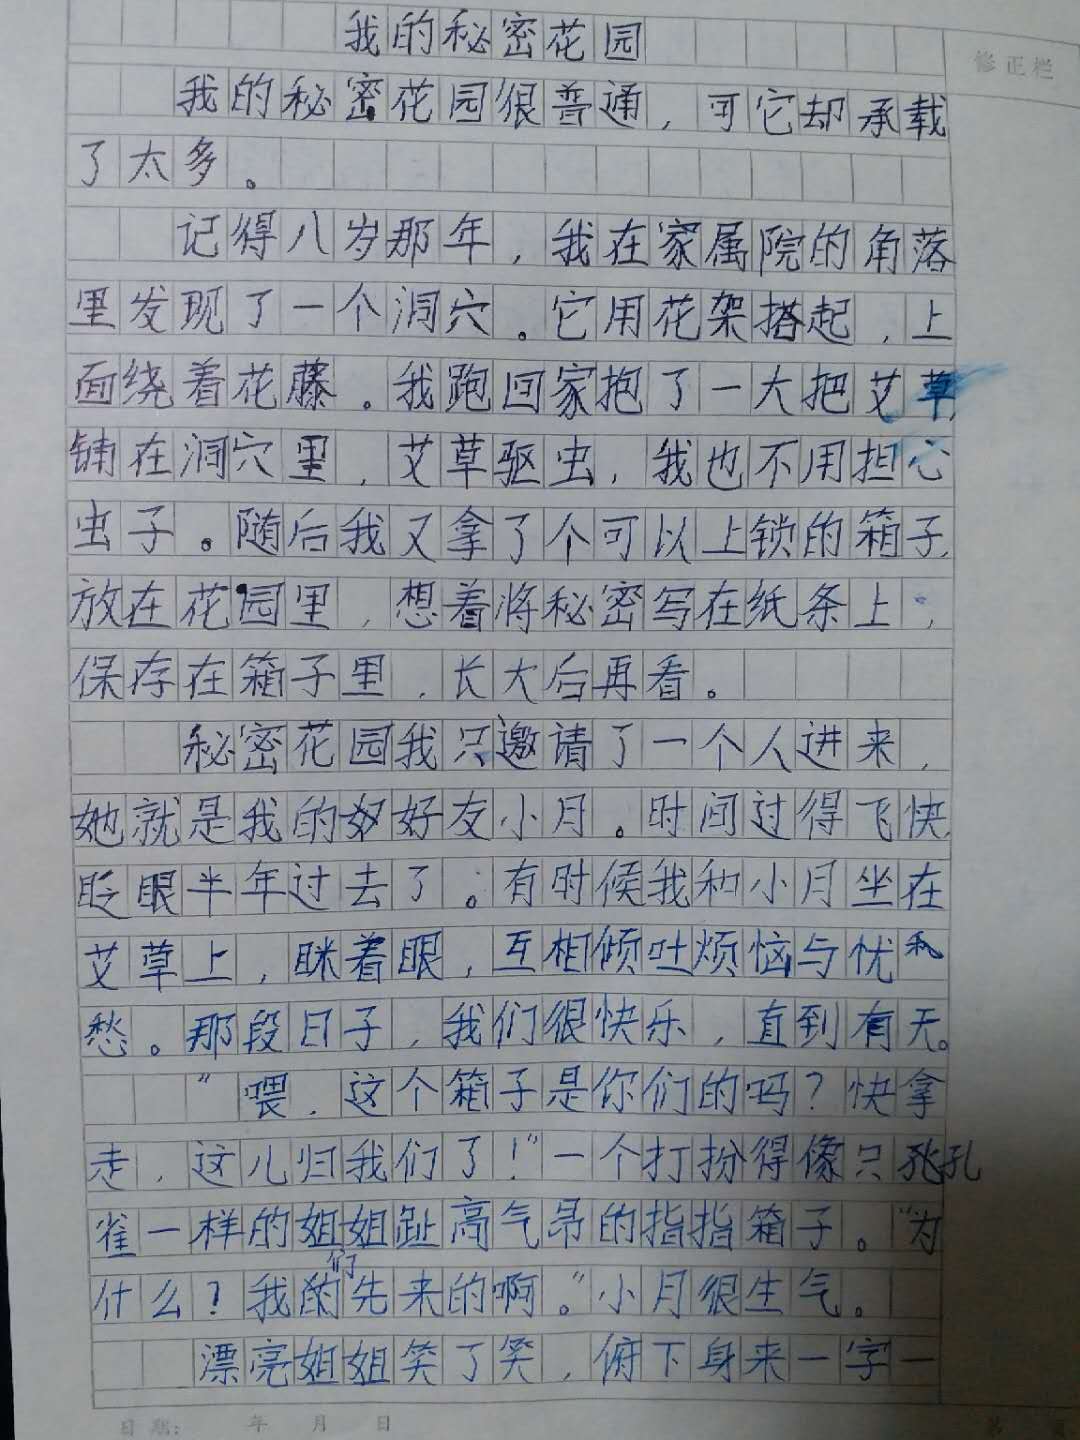 我的秘密花园
修正栏
我的秘密花园很普通，可它却承载
了太多。
记得八岁那年，我在家属院的角落
里发现了一个洞穴。它用花架搭起，上
面绕着花藤。我跑回家抱了一大把艾草，
铺在洞穴里，艾草驱虫，我也不用担心
虫子。随后我又拿了个可以上锁的箱子，
放在花园里，想着将秘密写在纸条上，
保存在箱子里，长大后再看。
秘密花园我只邀请了一个人进来，
她就是我的好好友小月。时间过得飞快，
眨眼半年过去了。有时候我和小月坐在
艾草上，眯着眼，互相倾吐烦恼与忧
愁。那段日子，我们很快乐，直到有天。
"喂，这个箱子是你们的吗？快拿
走，这儿归我们了！"一个打扮得像只孔
雀一样的姐姐趾高气昂的指指箱子。"为
什么？我们先来的啊。"小月很生气。
漂亮姐姐笑了笑，俯下身来一字一
日期： 年 月 日